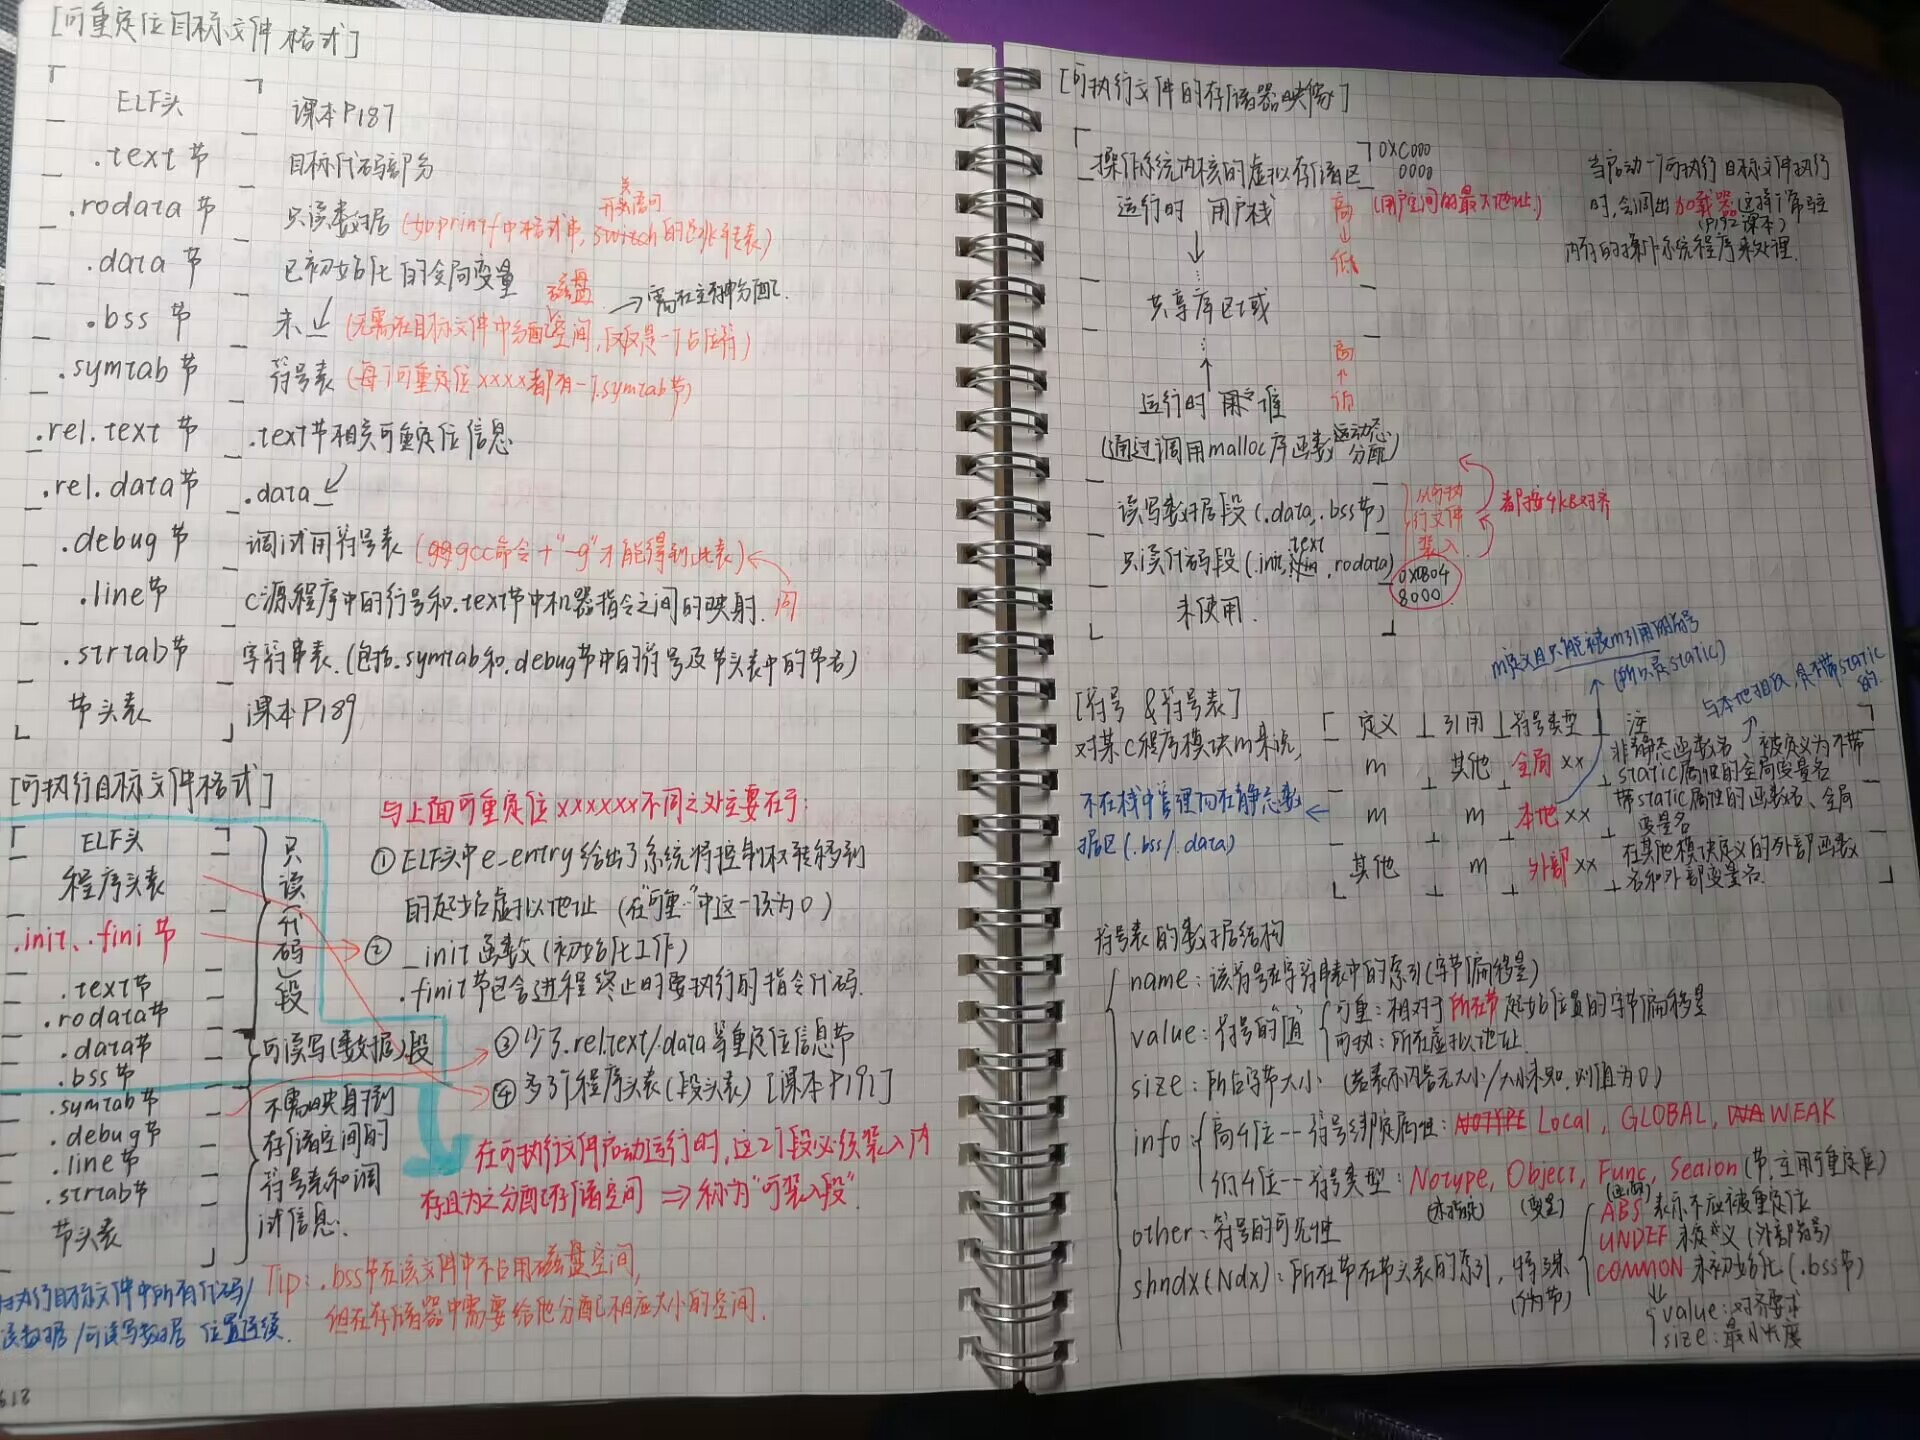 [可重定位目标文件格式]
ELF头 课本P187
.text节 目标代码部分
.rodata节 只读数据 (如printf中格式串, switch的跳转表)
开关语句
.data节 已初始化的全局变量
磁盘 → 需在主存中分配.
.bss节 未↙ (无需在目标文件中分配空间, 仅仅是一个占位符)
.symtab节 符号表 (每个可重定位xxxx都有一个.symtab节)
.rel.text节 .text节相关可重定位信息
.rel.data节 .data↙
.debug节 调试用符号表 (gcc命令+"-g"才能得到此表)
.line节 C源程序中的行号和.text节中机器指令之间的映射. 同
.strtab节 字符串表. (包括.symtab和.debug节中的符号及节头表中的节名)
节头表 课本P189
[可执行目标文件格式]
ELF头
程序头表
.init、.fini节
.text节
.rodata节
只读(代码)段
.data节
.bss节
可读写(数据)段
.symtab节
.debug节
.line节
.strtab节
节头表
不需映射到
存储空间的
符号表和调
试信息.
与上面可重定位xxxxxx不同之处主要在于:
① ELF头中e_entry给出了系统将控制权转移到
的起始虚拟地址 (在"可重"中这一项为0)
② _init函数(初始化工作)
.finit节包含进程终止时要执行的指令代码.
③ 少了.rel.text/.data等重定位信息节
④ 多了个程序头表(段头表) [课本P191]
在可执行文件启动运行时,这2个段必须装入内
存且为之分配存储空间 ⇒ 称为"可装入段".
Tip: .bss节在该文件中不占用磁盘空间,
但在存储器中需要给他分配相应大小的空间.
执行目标文件中所有代码/
读数据/可读写数据 位置连续.
[可执行文件的存储器映像]
操作系统内核的虚拟存储区
0XC000
0000
(用户空间的最大地址)
运行时 用户栈
高
↓
低
共享库区域
高
↑
低
运行时 堆
(通过调用malloc库函数 动态
分配)
读写数据段 (.data, .bss节)
只读代码段 (.init, .text, .rodata)
从可执
行文件
装入
都按4KB对齐
0x0804
8000
未使用.
当启动一个可执行目标文件执行
时,会调出加载器这样个常驻
(P192课本)
内存的操作系统程序来处理.
[符号 & 符号表]
对某C程序模块m来说,
m定义且只能被m引用的符号
(所以是static)
与本地相反,是不带static
的.
定义 引用 符号类型 注
m 其他 全局xx 非静态函数名、被定义为不带
static属性的全局变量名
m m 本地xx 带static属性的函数名、全局
变量名
其他 m 外部xx 在其他模块定义的外部函数
名和外部变量名.
不在栈中管理而在静态数
据区(.bss/.data)
符号表的数据结构
name: 该符号在字符串表中的索引(字节偏移量)
value: 符号的"值" 可重: 相对于所在节起始位置的字节偏移量
可执: 所在虚拟地址.
size: 所占字节大小 (若表示内容无大小/大小未知,则值为0)
info: 高4位--符号绑定属性: Local, GLOBAL, WEAK
低4位--符号类型: Notype, Object, Func, Section(节,立用于重定位)
(未指定) (变量) (函数)
other: 符号的可见性
shndx(Ndx): 所在节在节头表的索引, 特殊
(伪节)
ABS 表示不应被重定位
UNDEF 未定义 (外部符号)
COMMON 未初始化 (.bss节)
value: 对齐要求
size: 最小长度